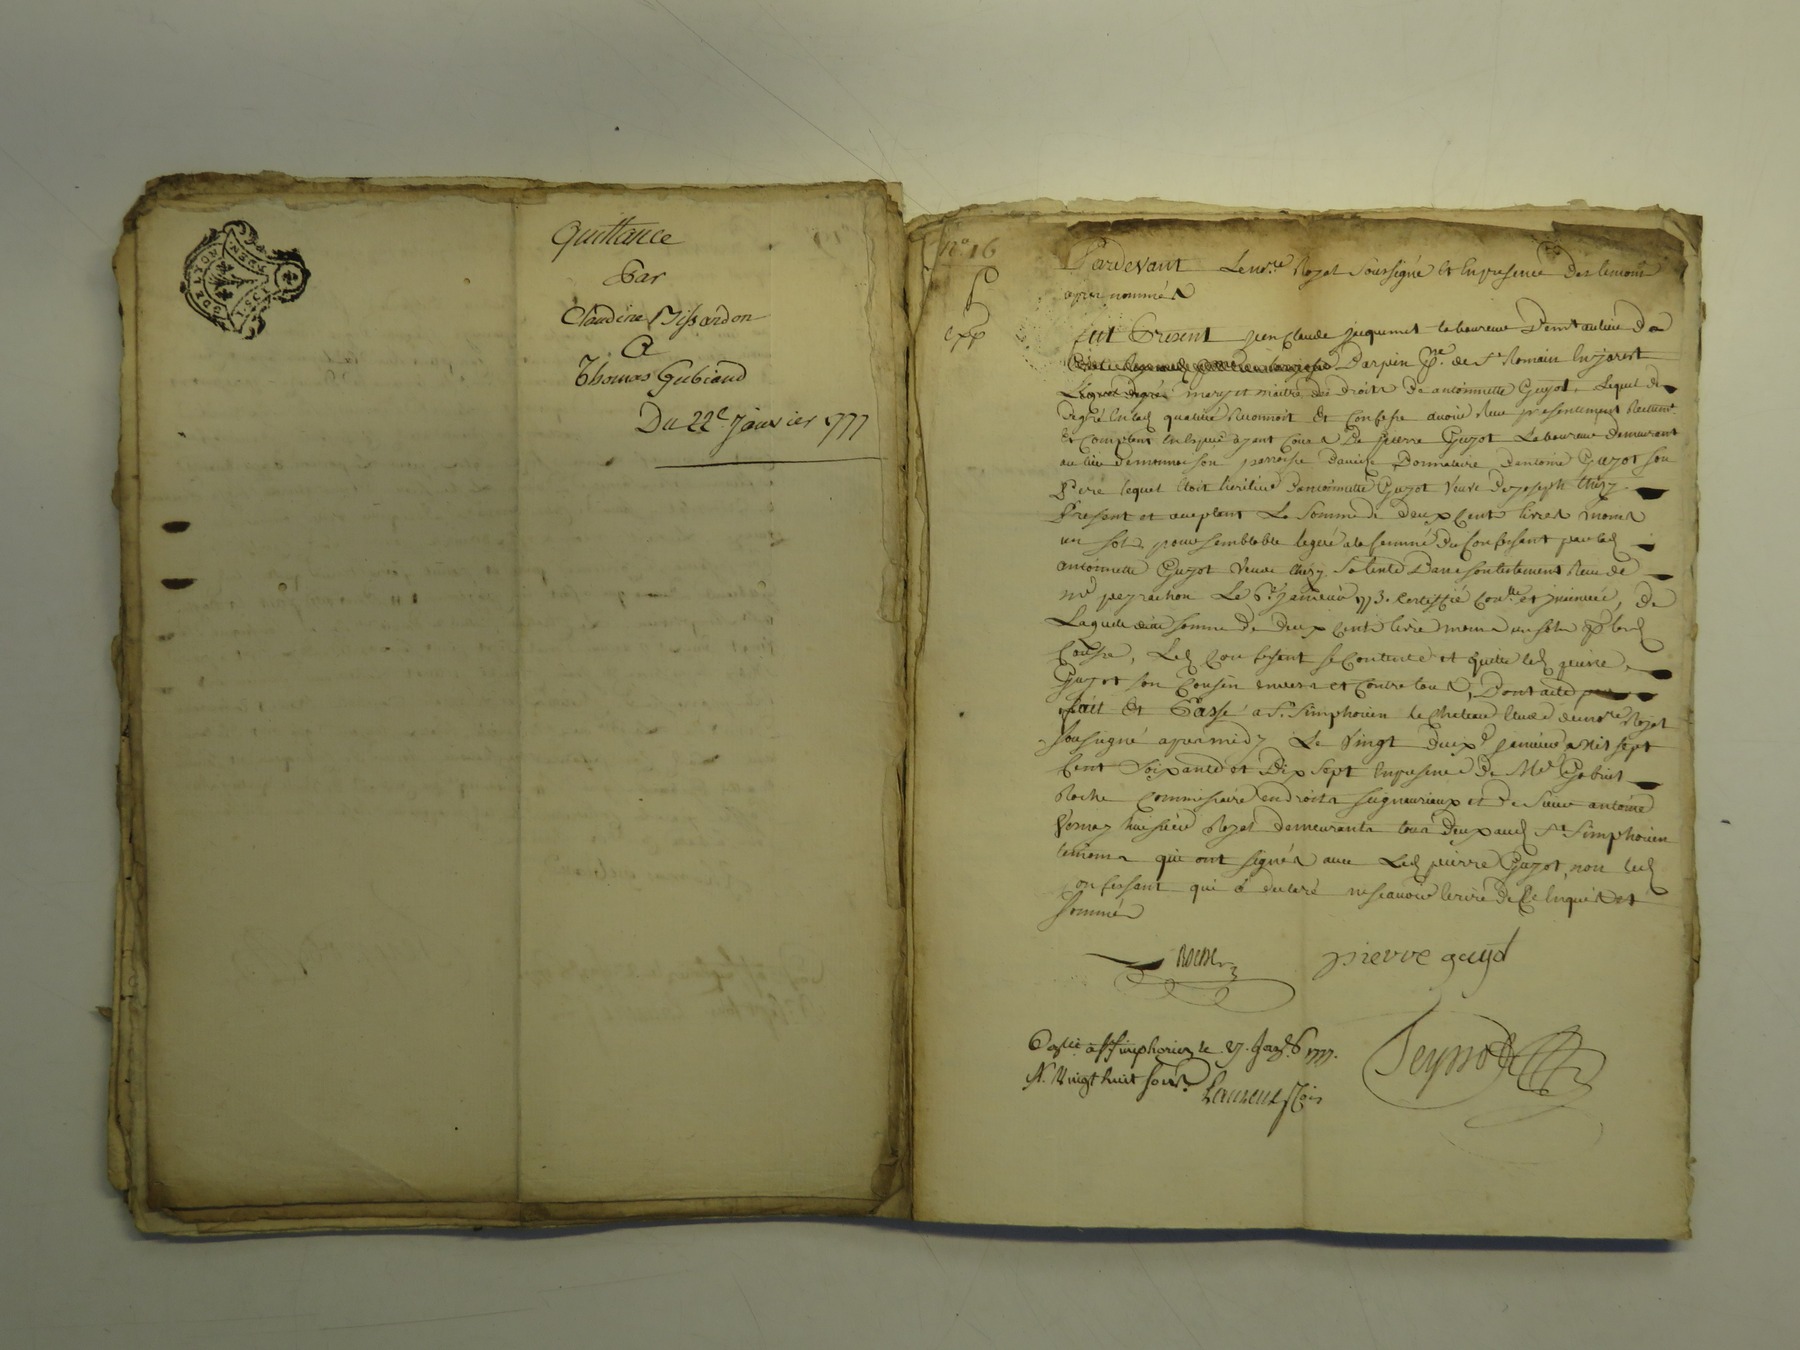 Quittance
Par
Claudine Bissardon
A
Thomas Gubiand
Du 22e. janvier 1777
no. 16
exp
Pardevant Le nore. Royal soussigné et en presence des temoins
apres nommés
fut Present jean Claude jacquemet laboureur demt au lieu de
Darpin pse. de St Romain en jarest
mary et maitre des droits de antoinnette Guyot, lequel de
degré en lad. qualité reconnoit et confesse avoir Reçu presentement Reellemt.
et Comptant en especes ayant Cours de pierre Guyot Laboureur demeurant
au lieu parroisse Donnataire dantoine Guyot son
Pere lequel étoit heritier dantoinnette Guyot veuve de joseph thery
Present et acceptant La somme de deux Cents livres moins
un sol, pour semblable legué a la femme du Confessant par lad.
antoinnette Guyot veuve thery sa tente Dans son testament Reçu de
me peyrachon Le 6e janvier 1773. Certiffié Conlle. et insinué, De
Laquelle somme de deux Cents livres moins un sol
Causse, Led. Confessant se Contente et quitte led. pierre
Guyot son Cousin envers et Contre tous, Dont acte
fait Et Passé a St. Simphorien le Chateau Etude du nore Royal
soussigné apres midy Le Vingt deuxe janvier mil sept
Cent Soixante et Dix sept En presence de Me Gabriel
Roche Commissaire en droits seigneuriaux et de sieur antoine
Vernay huissier Royal demeurants tous deux aud. St Simphorien
temoins qui ont signés avec Led. pierre Guyot, non led.
Confessant qui a declaré ne scavoir écrire de Ce Enquis et
sommé
Roche
pierre guyot
Collé. à St simphorien le 27. Janer. 1777.
R. Vingt huit sols.